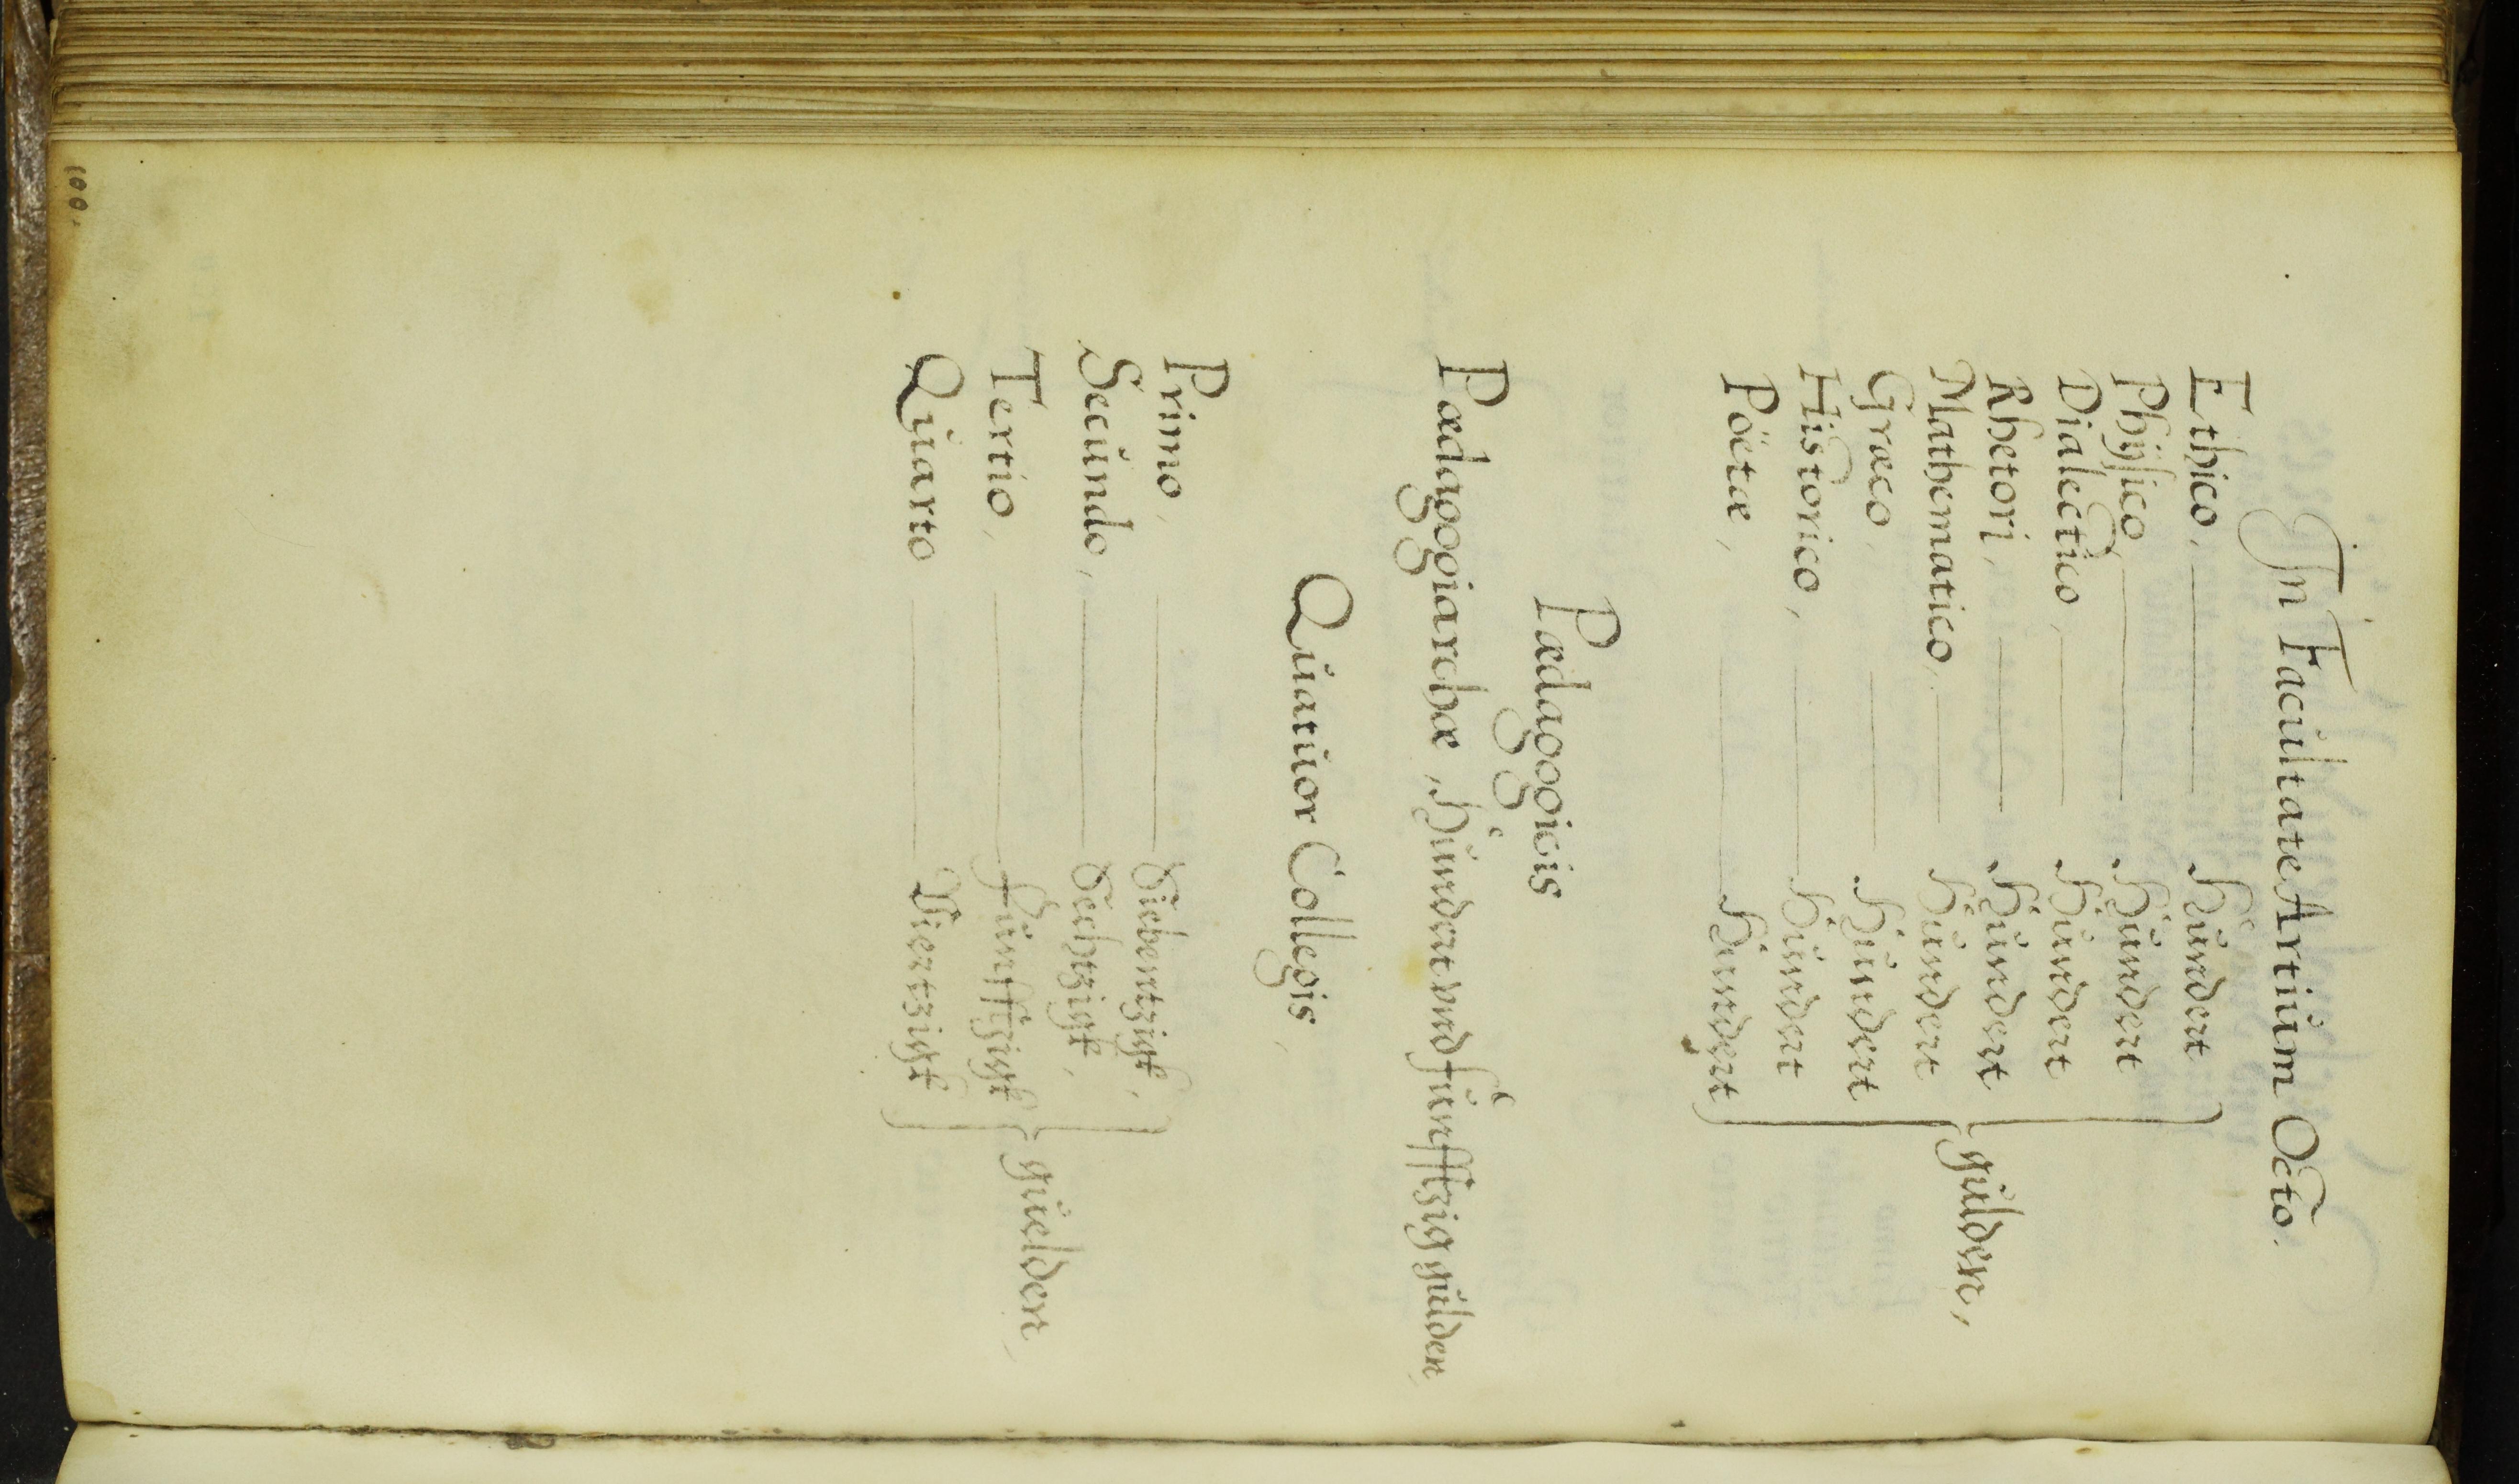 In Facultate Artium Octo.
Ethico, Hundert
Physico Hundert
Dialectico, Hundert
Rhetori, Hundert
Mathematico, Hundert
Græco, Hundert
Historico, Hundert
Poëtæ, Hundert
gulden,
Pædagogicis
Pædagogiarchæ, Hundert vnd funffzig gulden
Quatuor Collegis,
Primo, Siebentzigk,
Secundo, Sechtzigk,
Tertio, funffzigk
Quarto Viertzigk
guelden,
100.